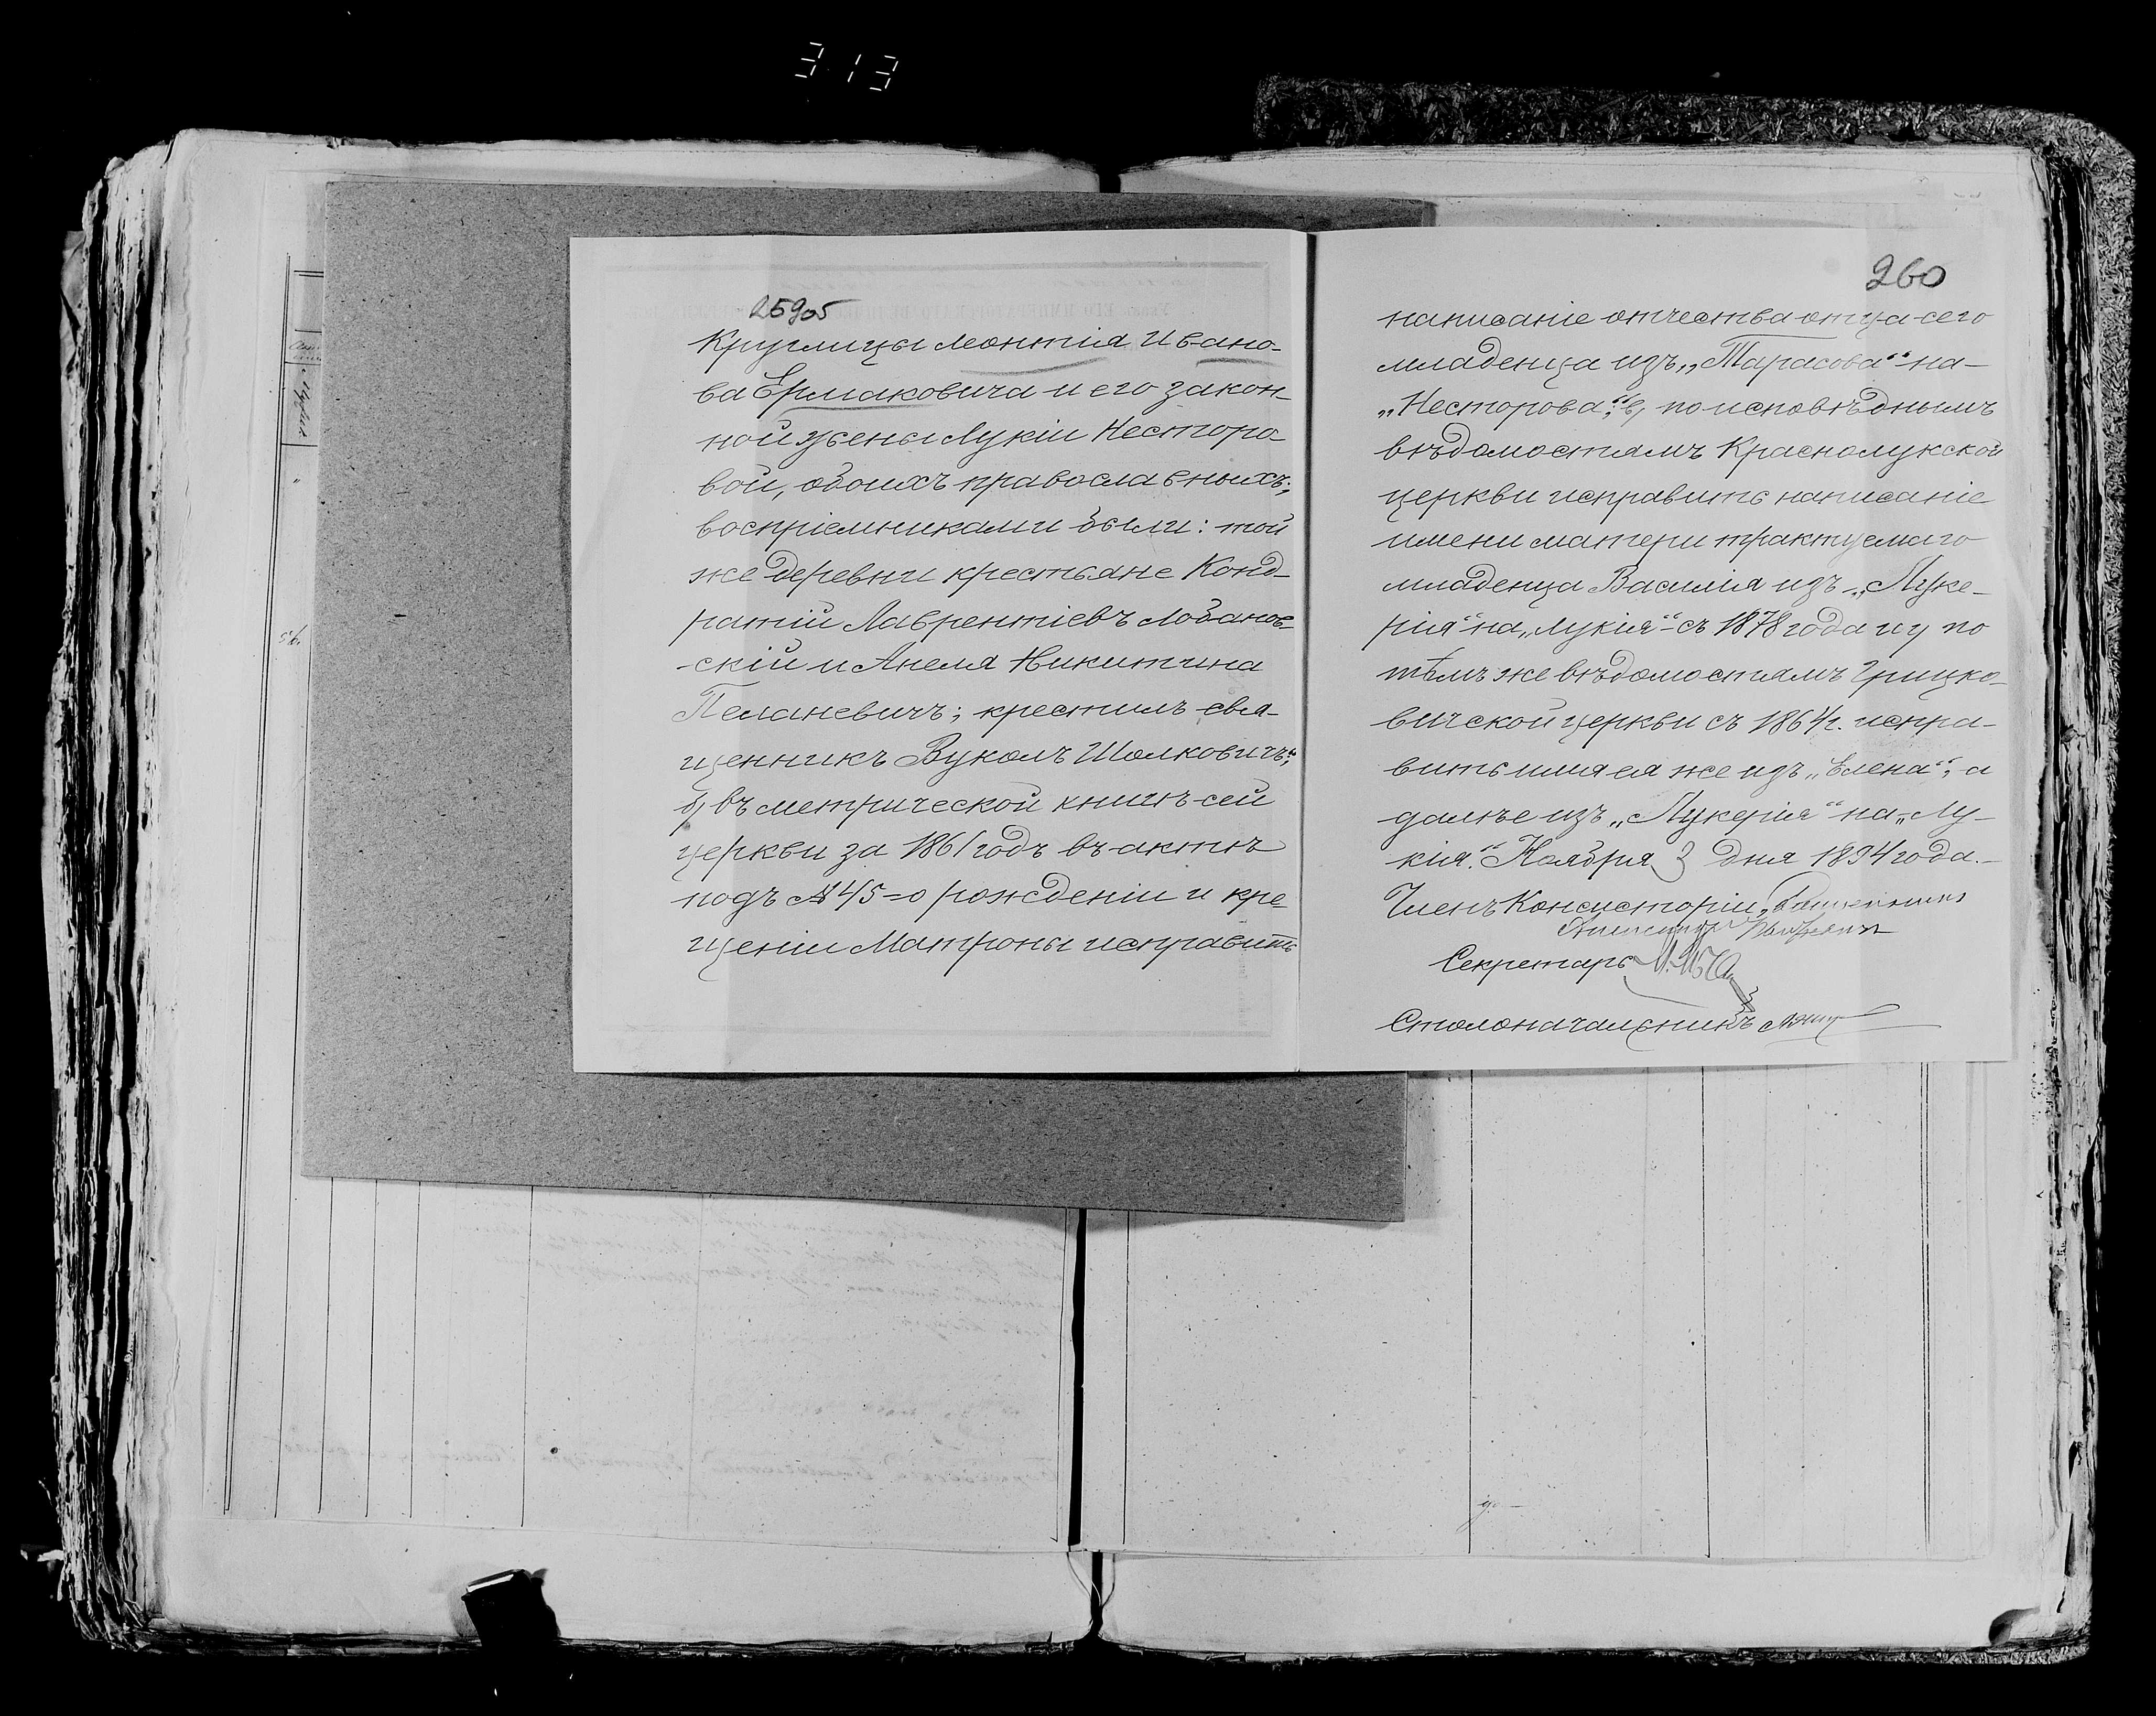 313
259об
Круглицы Леонтія Ивано-
ва Ермаковича и его закон-
ной жены Лукіи Несторо-
вой, обоихъ православныхъ;
воспріемниками были: той
же деревни крестьяне Конд-
ратій Лаврентіевъ Лобанов-
-скій и Анеля Никитина
Пеланевичъ; крестилъ свя-
щенникъ Вуколъ Шолковичъ";
б) въ метрической книгѣ сей
церкви за 1861 годъ въ актѣ
подъ № 45-о рожденіи и кре-
щеніи Матроны исправить
260
написаніе отчества отца сего
младенца изъ „Тарасова" на-
„Несторова"; в) по исповѣднымъ
вѣдомостямъ Краснолукской
церкви исправить написаніе
имени матери трактуемаго
младенца Василія изъ „Луке-
рія" на „Лукія" съ 1878 года и г) по
тѣмъ же вѣдомостямъ Грицко-
вичской церкви съ 1864 г. испра-
вить имя ея же изъ „Елена", а
далѣе изъ „Лукерія" на „Лу-
кія". Ноября 3 дня 1894 года.-
Членъ Консисторіи,
Секретарь
Столоначальникъ